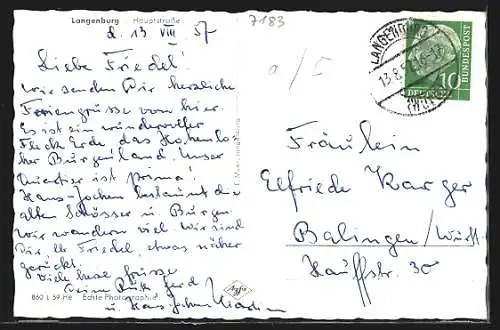 Langenburg Hauptstraße
d. 13 VIII 57
Liebe Friedel!
wir senden Dir herzliche
Feriengrüsse von hier.
Es ist ein wundervoller
Fleck Erde, das Hohenlo-
her Burgenland. Unser
Quartier ist prima!
Hans-Jochen bestaunt die
alten Schösser u. Burgen.
wir wandern viel. Wir sind
Dir lb. Friedel, etwas näher
gerückt.
Viele liebe Grüsse
Deine Ruth Gerd
u. Hans-Jochen
860 L 59 He Echte Photographie
Agfa
7183
LANGENBURG
13.8.57
10
DEUTSCHE
BUNDESPOST
Fräulein
Elfriede Karger
Balingen/Württ.
Hauffstr. 30